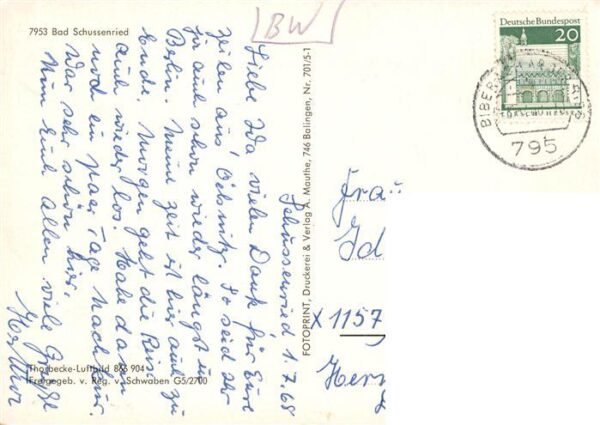 BW
7953 Bad Schussenried
Schussenried 1.7.68
Liebe Ida vielen Dank für Eure
Zeilen aus Oelsnitz. So seid Ihr
ja auch schon wieder längst in
Berlin. Meine Zeit ist hier auch zu
Ende. Morgen geht die Reise
auch wieder los. Habe dann
noch ein paar Tage Nachkur.
War sehr schön hier.
Nun Euch allen viele Grüße
Thorbecke-Luftbild 866 904
Freigegeb. v. Reg. v. Schwaben G5/2700
FOTOPRINT, Druckerei & Verlag A. Mauthe, 746 Balingen, Nr. 701/5-1
Deutsche Bundespost
20
LORSCH/HESSEN
795
Frau
Id
X 1157
Herm